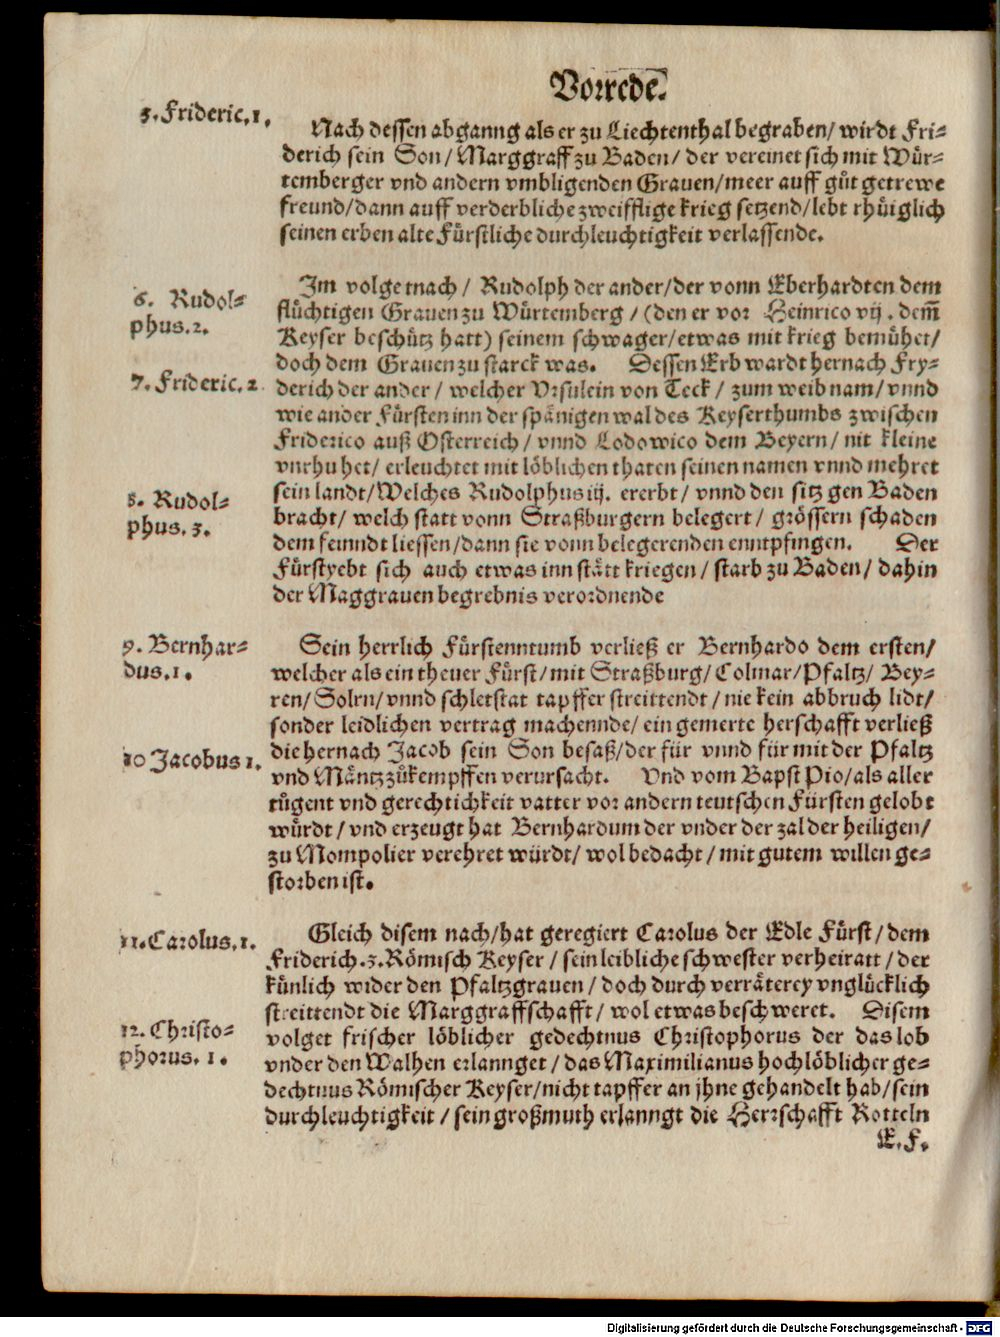 Vorrede.
5. Frideric. 1.
Nach dessen abganng als er zu Liechtenthal begraben/ wirdt Fri⸗
derich sein Son/ Marggraff zu Baden/ der vereinet sich mit Wür⸗
temberger vnd andern vmbligenden Grauen/ meer auff gůt getrewe
freund/ dann auff verderbliche zweifflige krieg setzend/ lebt rhůiglich
seinen erben alte Fürstliche durchleuchtigkeit verlassende.
6. Rudol⸗
phus. 2.
Im volget nach/ Rudolph der ander/ der vonn Eberhardten dem
flüchtigen Grauen zu Würtemberg/ (den er vor Heinrico vij. dem̃
Keyser beschütz hatt) seinem schwager/ etwas mit krieg bemühet/
doch dem Grauen zu starck was. Dessen Erb wardt hernach Fry⸗
7. Frideric. 2.
derich der ander/ welcher Vrsulein von Teck/ zum weib nam/ vnnd
wie ander Fürsten inn der spänigen wal des Keyserthumbs zwischen
Friderico auß Osterreich/ vnnd Lodowico dem Beyern/ nit kleine
vnrhu het/ erleuchtet mit löblichen thaten seinen namen vnnd mehret
8. Rudol⸗
phus. 3.
sein landt/ Welches Rudolphus iij. ererbt/ vnnd den sitz gen Baden
bracht/ welch statt vonn Straßburgern belegert/ grössern schaden
dem feinndt liessen/ dann sie vonn belegerenden enntpfingen. Der
Fürst yebt sich auch etwas inn stätt kriegen/ starb zu Baden/ dahin
der Maggrauen begrebnis verordnende
9. Bernhar⸗
dus. 1.
Sein herrlich Fürstenntumb verließ er Bernhardo dem ersten/
welcher als ein theuer Fürst/ mit Straßburg/ Colmar/ Pfaltz/ Bey⸗
ren/ Solrn/ vnnd schletstat tapffer streittendt/ nie kein abbruch lidt/
sonder leidlichen vertrag machennde/ ein gemerte herschafft verließ
10 Jacobus 1.
die hernach Jacob sein Son besaß/ der für vnnd für mit der Pfaltz
vnd Mäntz zůkempffen verursacht. Vnd vom Bapst Pio/ als aller
tůgent vnd gerechtichkeit vatter vor andern teutschen Fürsten gelobt
würdt/ vnd erzeugt hat Bernhardum der vnder der zal der heiligen/
zu Mompolier verehret würdt/ wol bedacht/ mit gutem willen ge⸗
storben ist.
11. Carolus. 1.
Gleich disem nach/ hat geregiert Carolus der Edle Fürst/ dem
Friderich. 3. Römisch Keyser/ sein leibliche schwester verheiratt/ der
künlich wider den Pfaltzgrauen/ doch durch verräterey vnglücklich
streittendt die Marggraffschafft/ wol etwas beschweret. Disem
12. Christo⸗
phorus. 1.
volget frischer löblicher gedechtnus Christophorus der das lob
vnder den Walhen erlannget/ das Maximilianus hochlöblicher ge⸗
dechtnus Römischer Keyser/ nicht tapffer an jhne gehandelt hab/ sein
durchleuchtigkeit/ sein großmuth erlanngt die Herrschafft Rotteln
E. F.
Digitalisierung gefördert durch die Deutsche Forschungsgemeinschaft - DFG